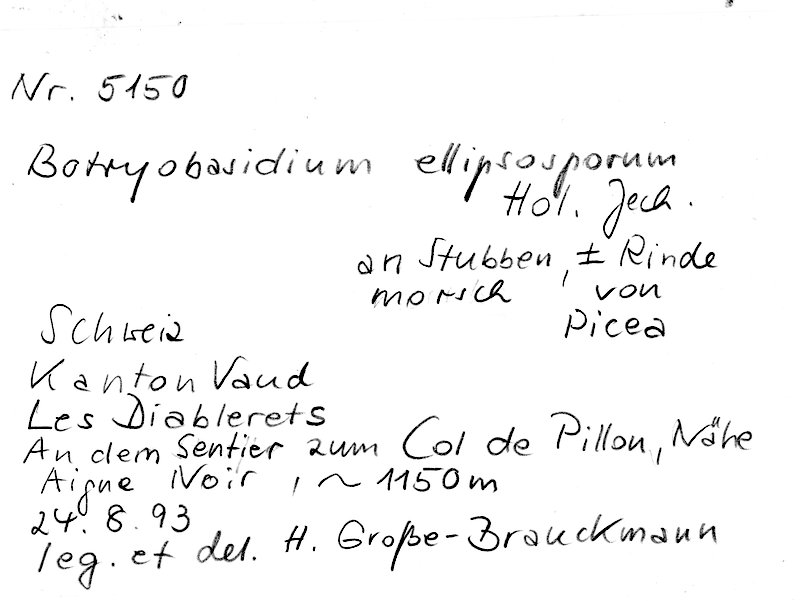 Nr. 5150
Botryobasidium ellipsosporum
Hol. Jech.
an Stubben, ± Rinde
morsch, von
Picea
Schweiz
Kanton Vaud
Les Diablerets
An dem Sentier zum Col de Pillon, Nähe
Aigne Noir, ~ 1150 m
24. 8. 93
leg. et det. H. Große-Brauckmann